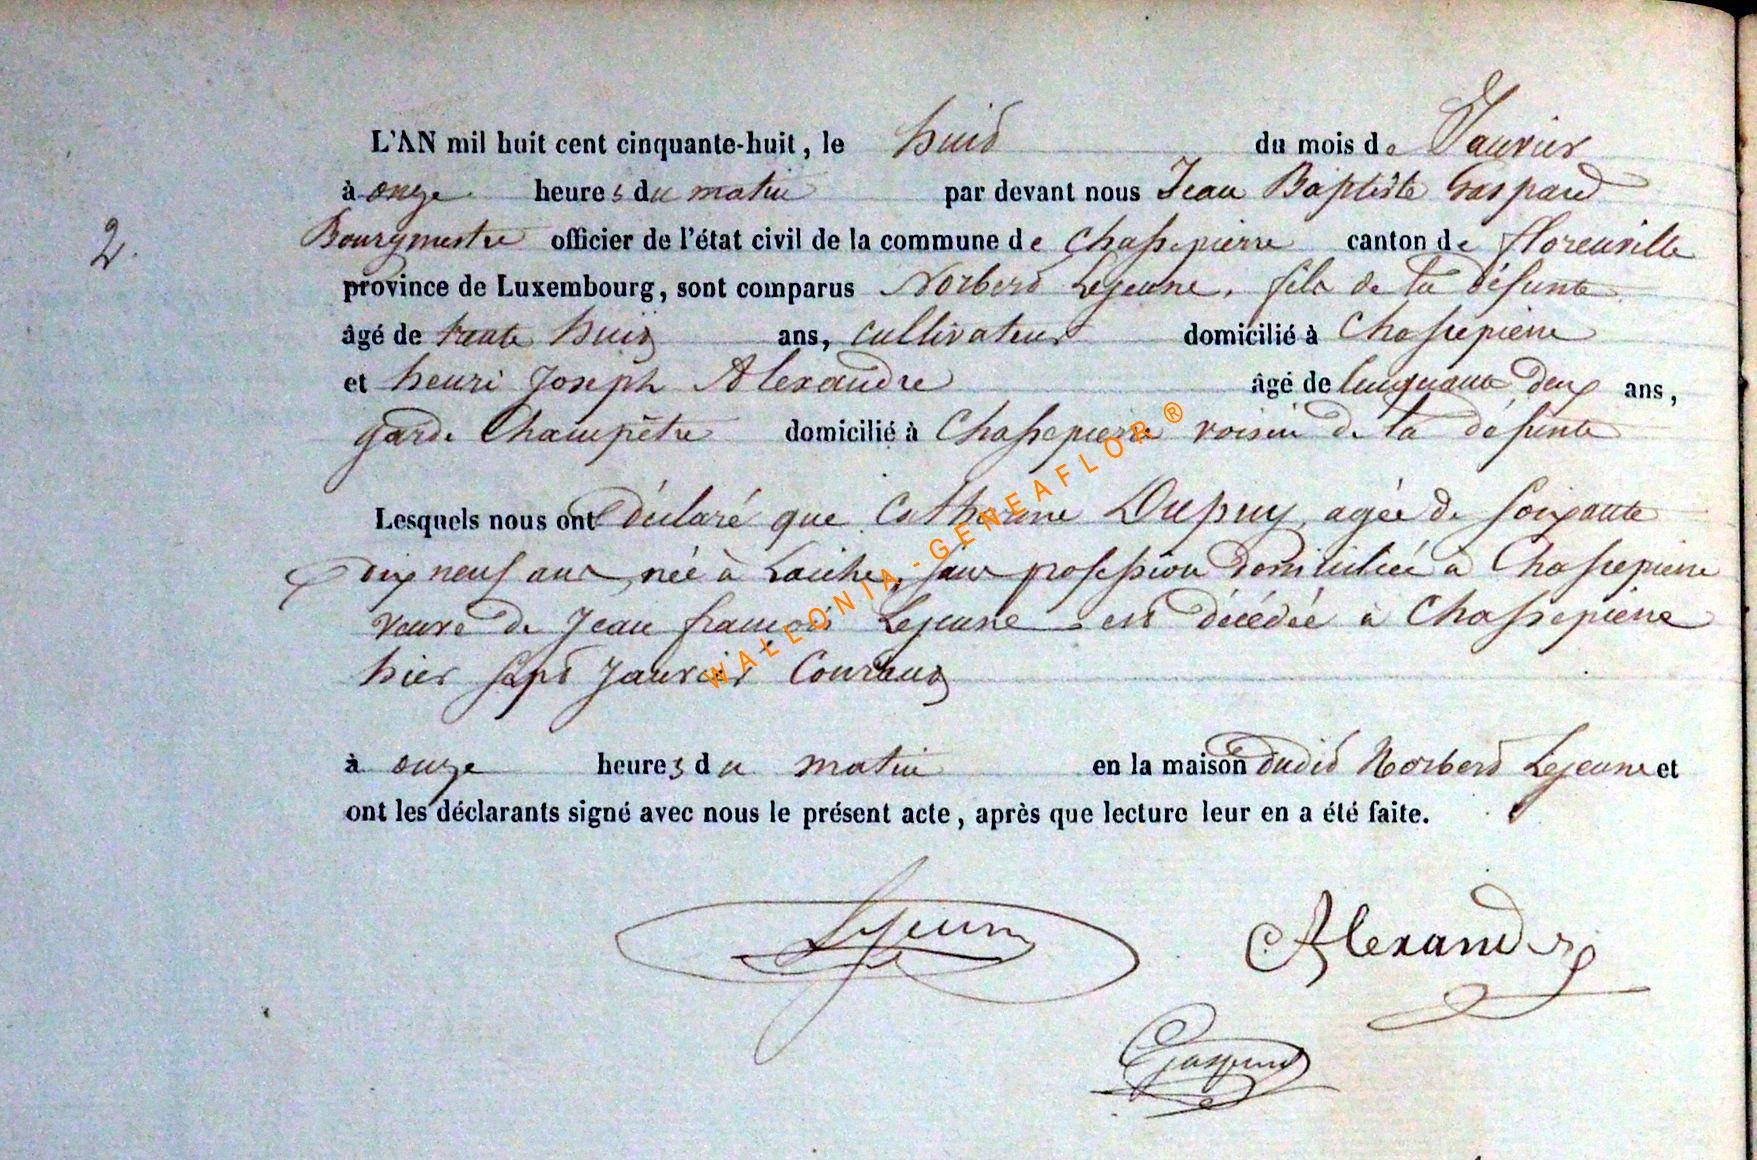 L'AN mil huit cent cinquante-huit, le huit du mois de Janvier
à onze heures du matin par devant nous Jean Baptiste Gaspard
2. Bourgmestre officier de l'état civil de la commune de Chassepierre canton de florenville
province de Luxembourg, sont comparus Norbert Lejeune, fils de la défunte
âgé de trente huit ans, cultivateur domicilié à Chassepierre
et henri Joseph Alexandre âgé de Cinquante deux ans,
garde Champêtre domicilié à Chassepierre voisin de la défunte
Lesquels nous ont déclaré que Catherine Dupuy, agée de soixante
dix neuf ans, née à Laiche, sans profession domiciliée à Chassepierre
veuve de Jean françois Lejeune est décédée à Chassepierre
hier sept Janvier Courant
à onze heures du matin en la maison dudit Norbert Lejeune et
ont les déclarants signé avec nous le présent acte, après que lecture leur en a été faite.
Lejeune Alexandre
Gaspard
WALLONIA - GENEAFLOR ®